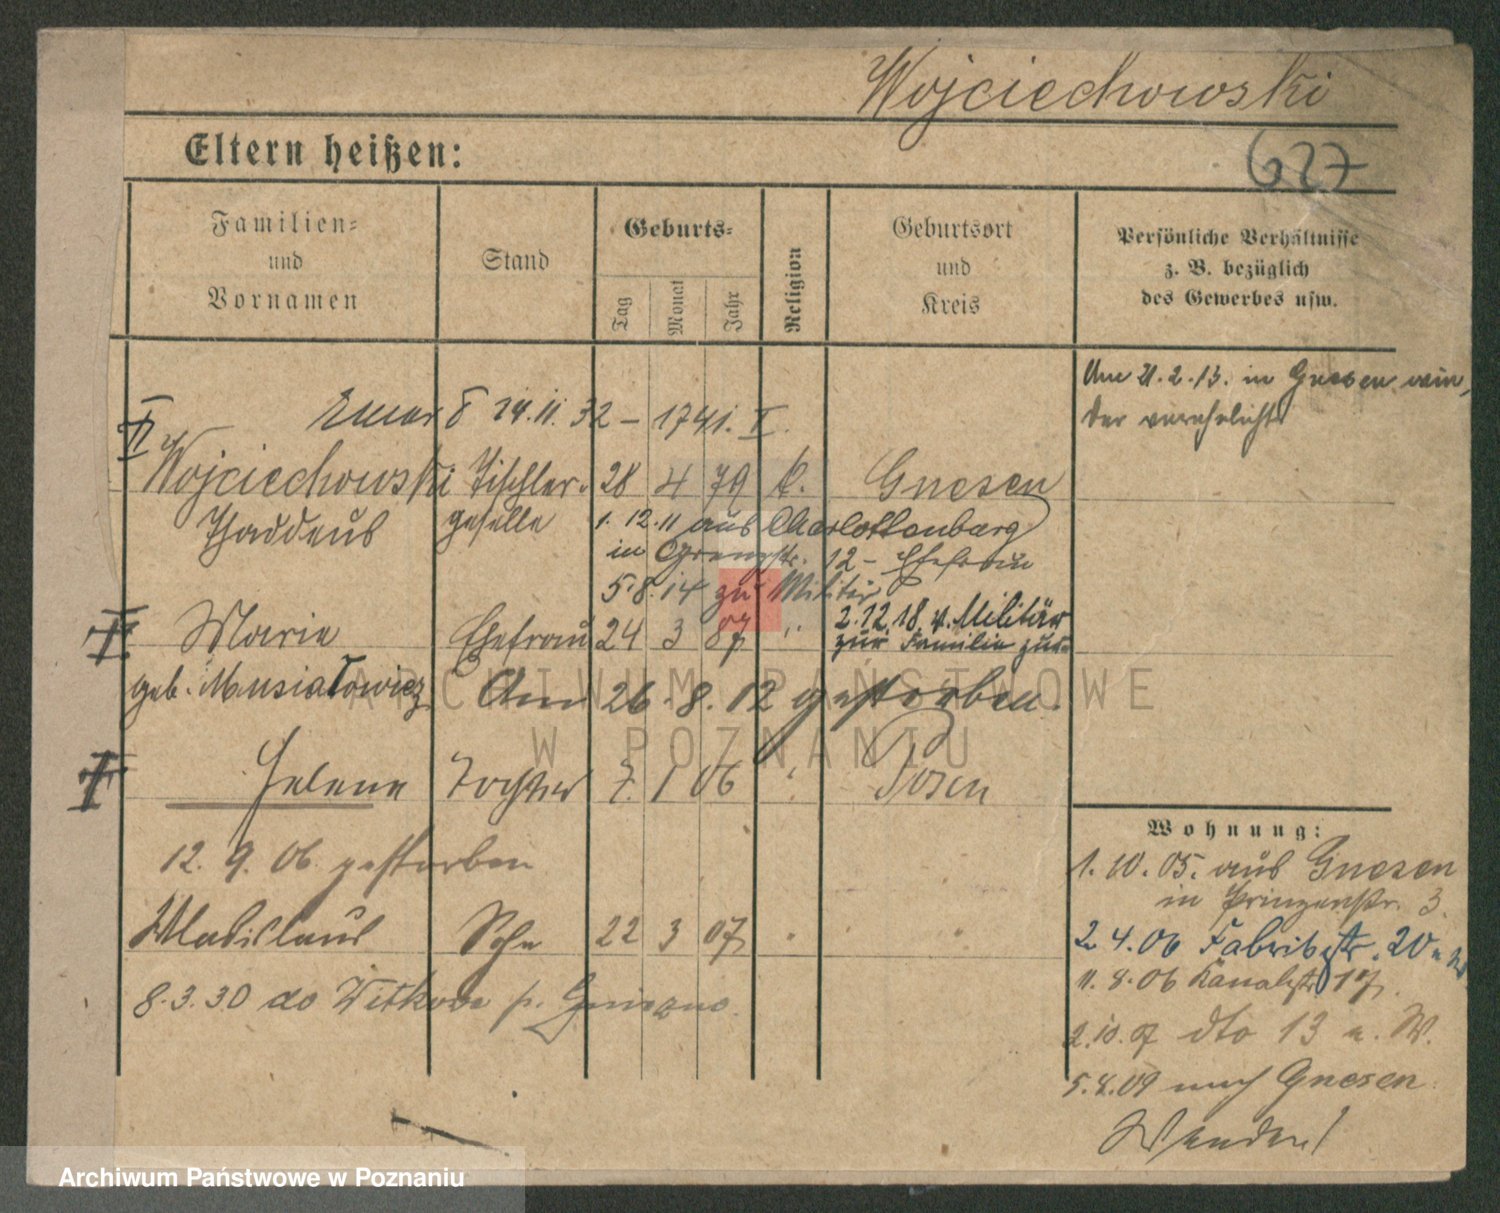 Wojciechowski
Eltern heißen:
627
Familien-
und
Vornamen
Stand
Geburts-
Tag
Monat
Jahr
Religion
Geburtsort
und
Kreis
Persönliche Verhältnisse
z. B. bezüglich
des Gewerbes usw.
Am 21.2.13. in Gnesen wie,
der verehelicht
II
14.11.32 – 1741. I.
Wojciechowski Tischler- 28 4 79 k. Gnesen
Thaddeus geselle 1.12.11 aus Charlottenburg
in Grenzstr. 12 – Ehefrau
5.8.14 zum Militär
2.12.18 v. Militär
zur Familie zur.
Marie Ehefrau 24 3 87 "
geb. Musiałowicz Am 26.8.12 gestorben.
Helene Tochter 7. 1 06 " Posen
12.9.06. gestorben
Wladislaus Sohn 22 3 07
8.3.30 do Witkowo p. Gniezno.
Wohnung:
1.10.05. aus Gnesen
in Prinzenstr. 3.
2.4.06 Fabrikstr. 20
11.8.06 Kanalstr 17.
2.10.07 dto 13 n. W.
5.8.09 nach Gnesen.
Wenden!
ARCHIWUM PAŃSTWOWE
W POZNANIU
Archiwum Państwowe w Poznaniu